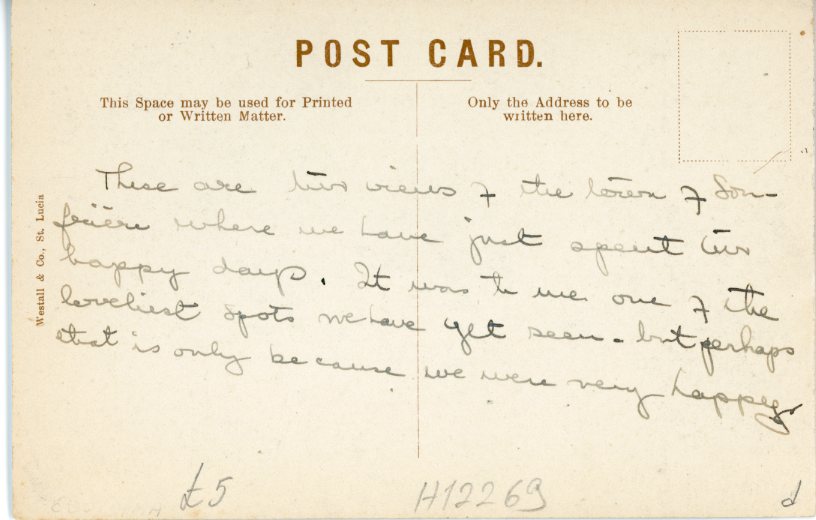 POST CARD.
This Space may be used for Printed
or Written Matter.
Only the Address to be
written here.
Westall & Co., St. Lucia
These are two views of the town of Sou-
frière where we have just spent two
happy days. It was to me one of the
loveliest spots we have yet seen - but perhaps
that is only because we were very happy
£5
H12269
d